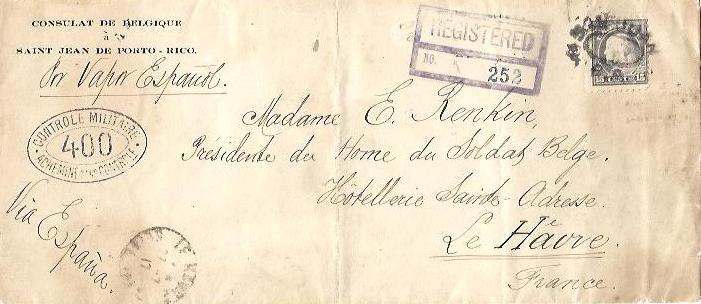 CONSULAT DE BELGIQUE
à
SAINT JEAN DE PORTO-RICO.
Por Vapor Español.
REGISTERED
NO. 252
15 15
CONTROLE MILITAIRE
400
Madame E. Renkin,
Présidente du Home du Soldat Belge.
Hôtellerie Sainte-Adresse.
Le Hâvre.
France.
Via España.